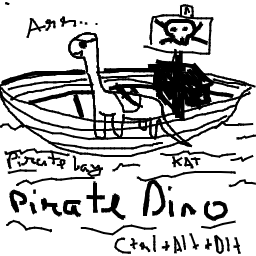 Arr...
Pirate bay
KAT
Pirate Dino
Ctrl+Alt+Dlt